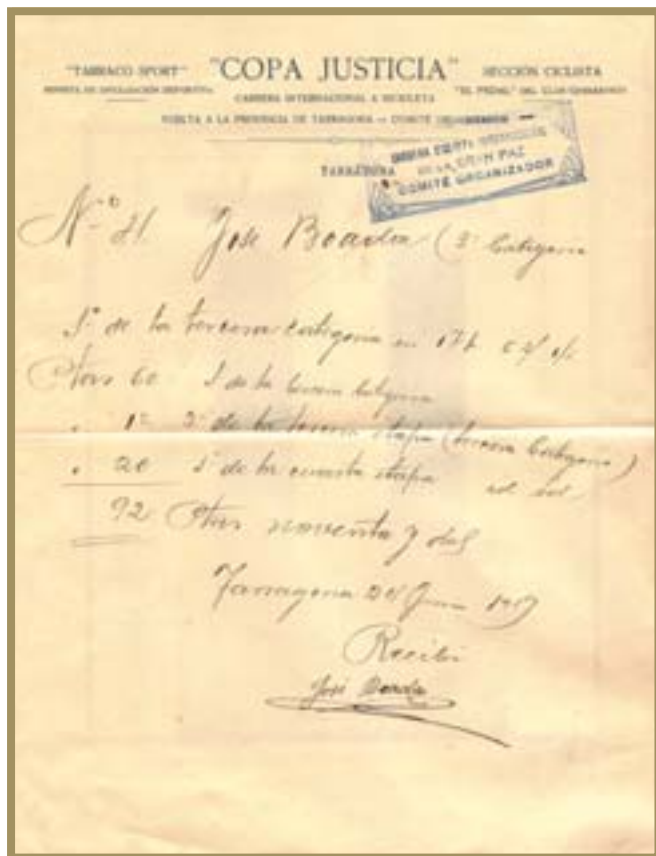 "TARRACO SPORT" "COPA JUSTICIA" SECCIÓN CICLISTA
REVISTA DE DIVULGACIÓN DEPORTIVA CARRERA INTERNACIONAL A BICICLETA "EL PEDAL" DEL CLUB GIMNÁSTICO
VUELTA A LA PROVINCIA DE TARRAGONA — COMITÉ ORGANIZADOR
TARRAGONA
GRAN PAZ
COMITÉ ORGANIZADOR
Nº 21 José Boada (3ª Categoria
1º de la tercera categoria en 17 h
Ptas 60 1 de la tercera categoria
" 12 2º de la tercera etapa (tercera Categoria)
" 20 1º de la cuarta etapa id id
92 Ptas noventa y dos
Tarragona
Recibí
José Boada